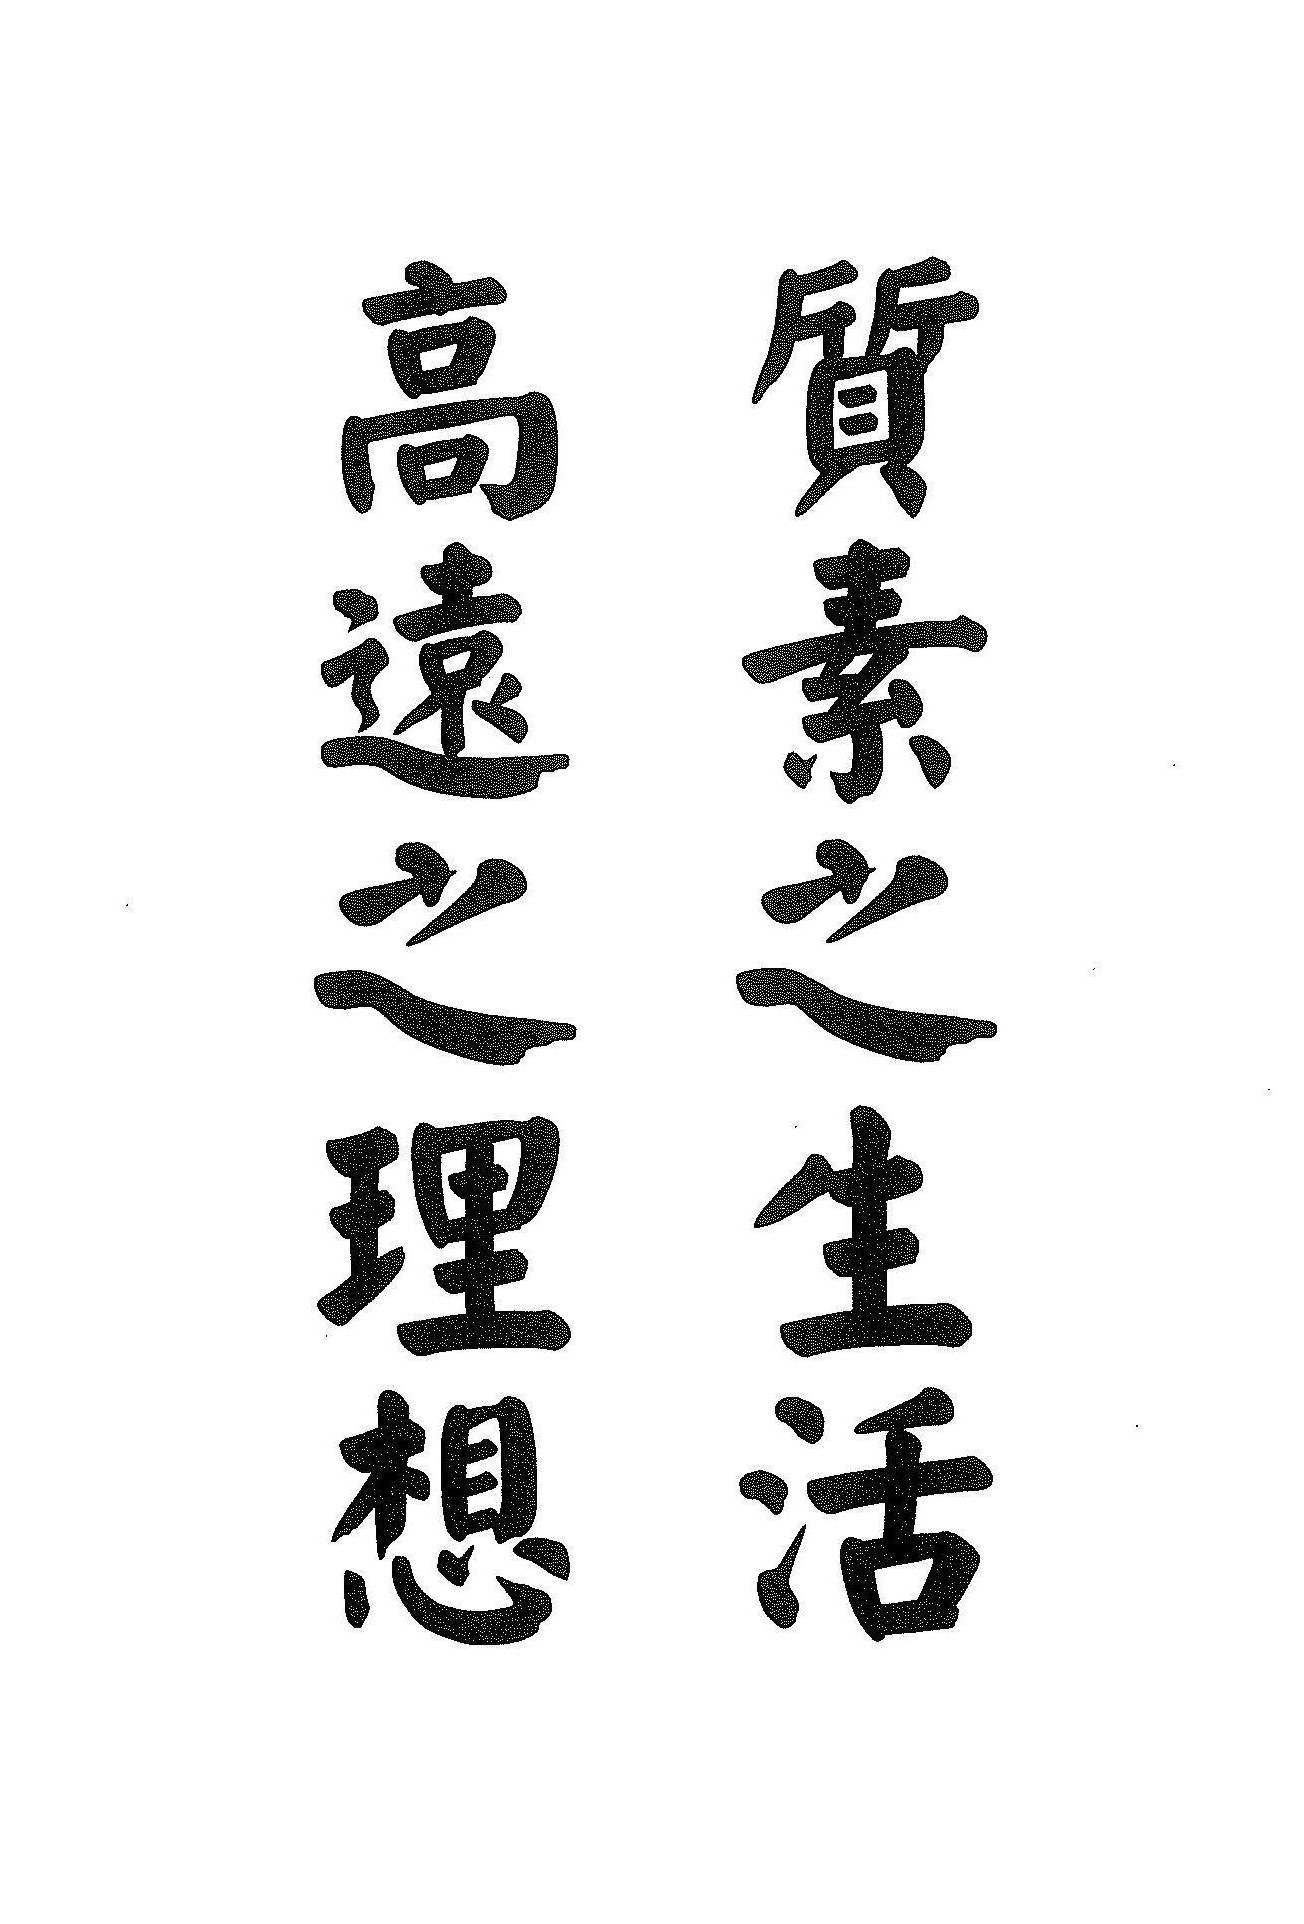 質素之生活
高遠之理想